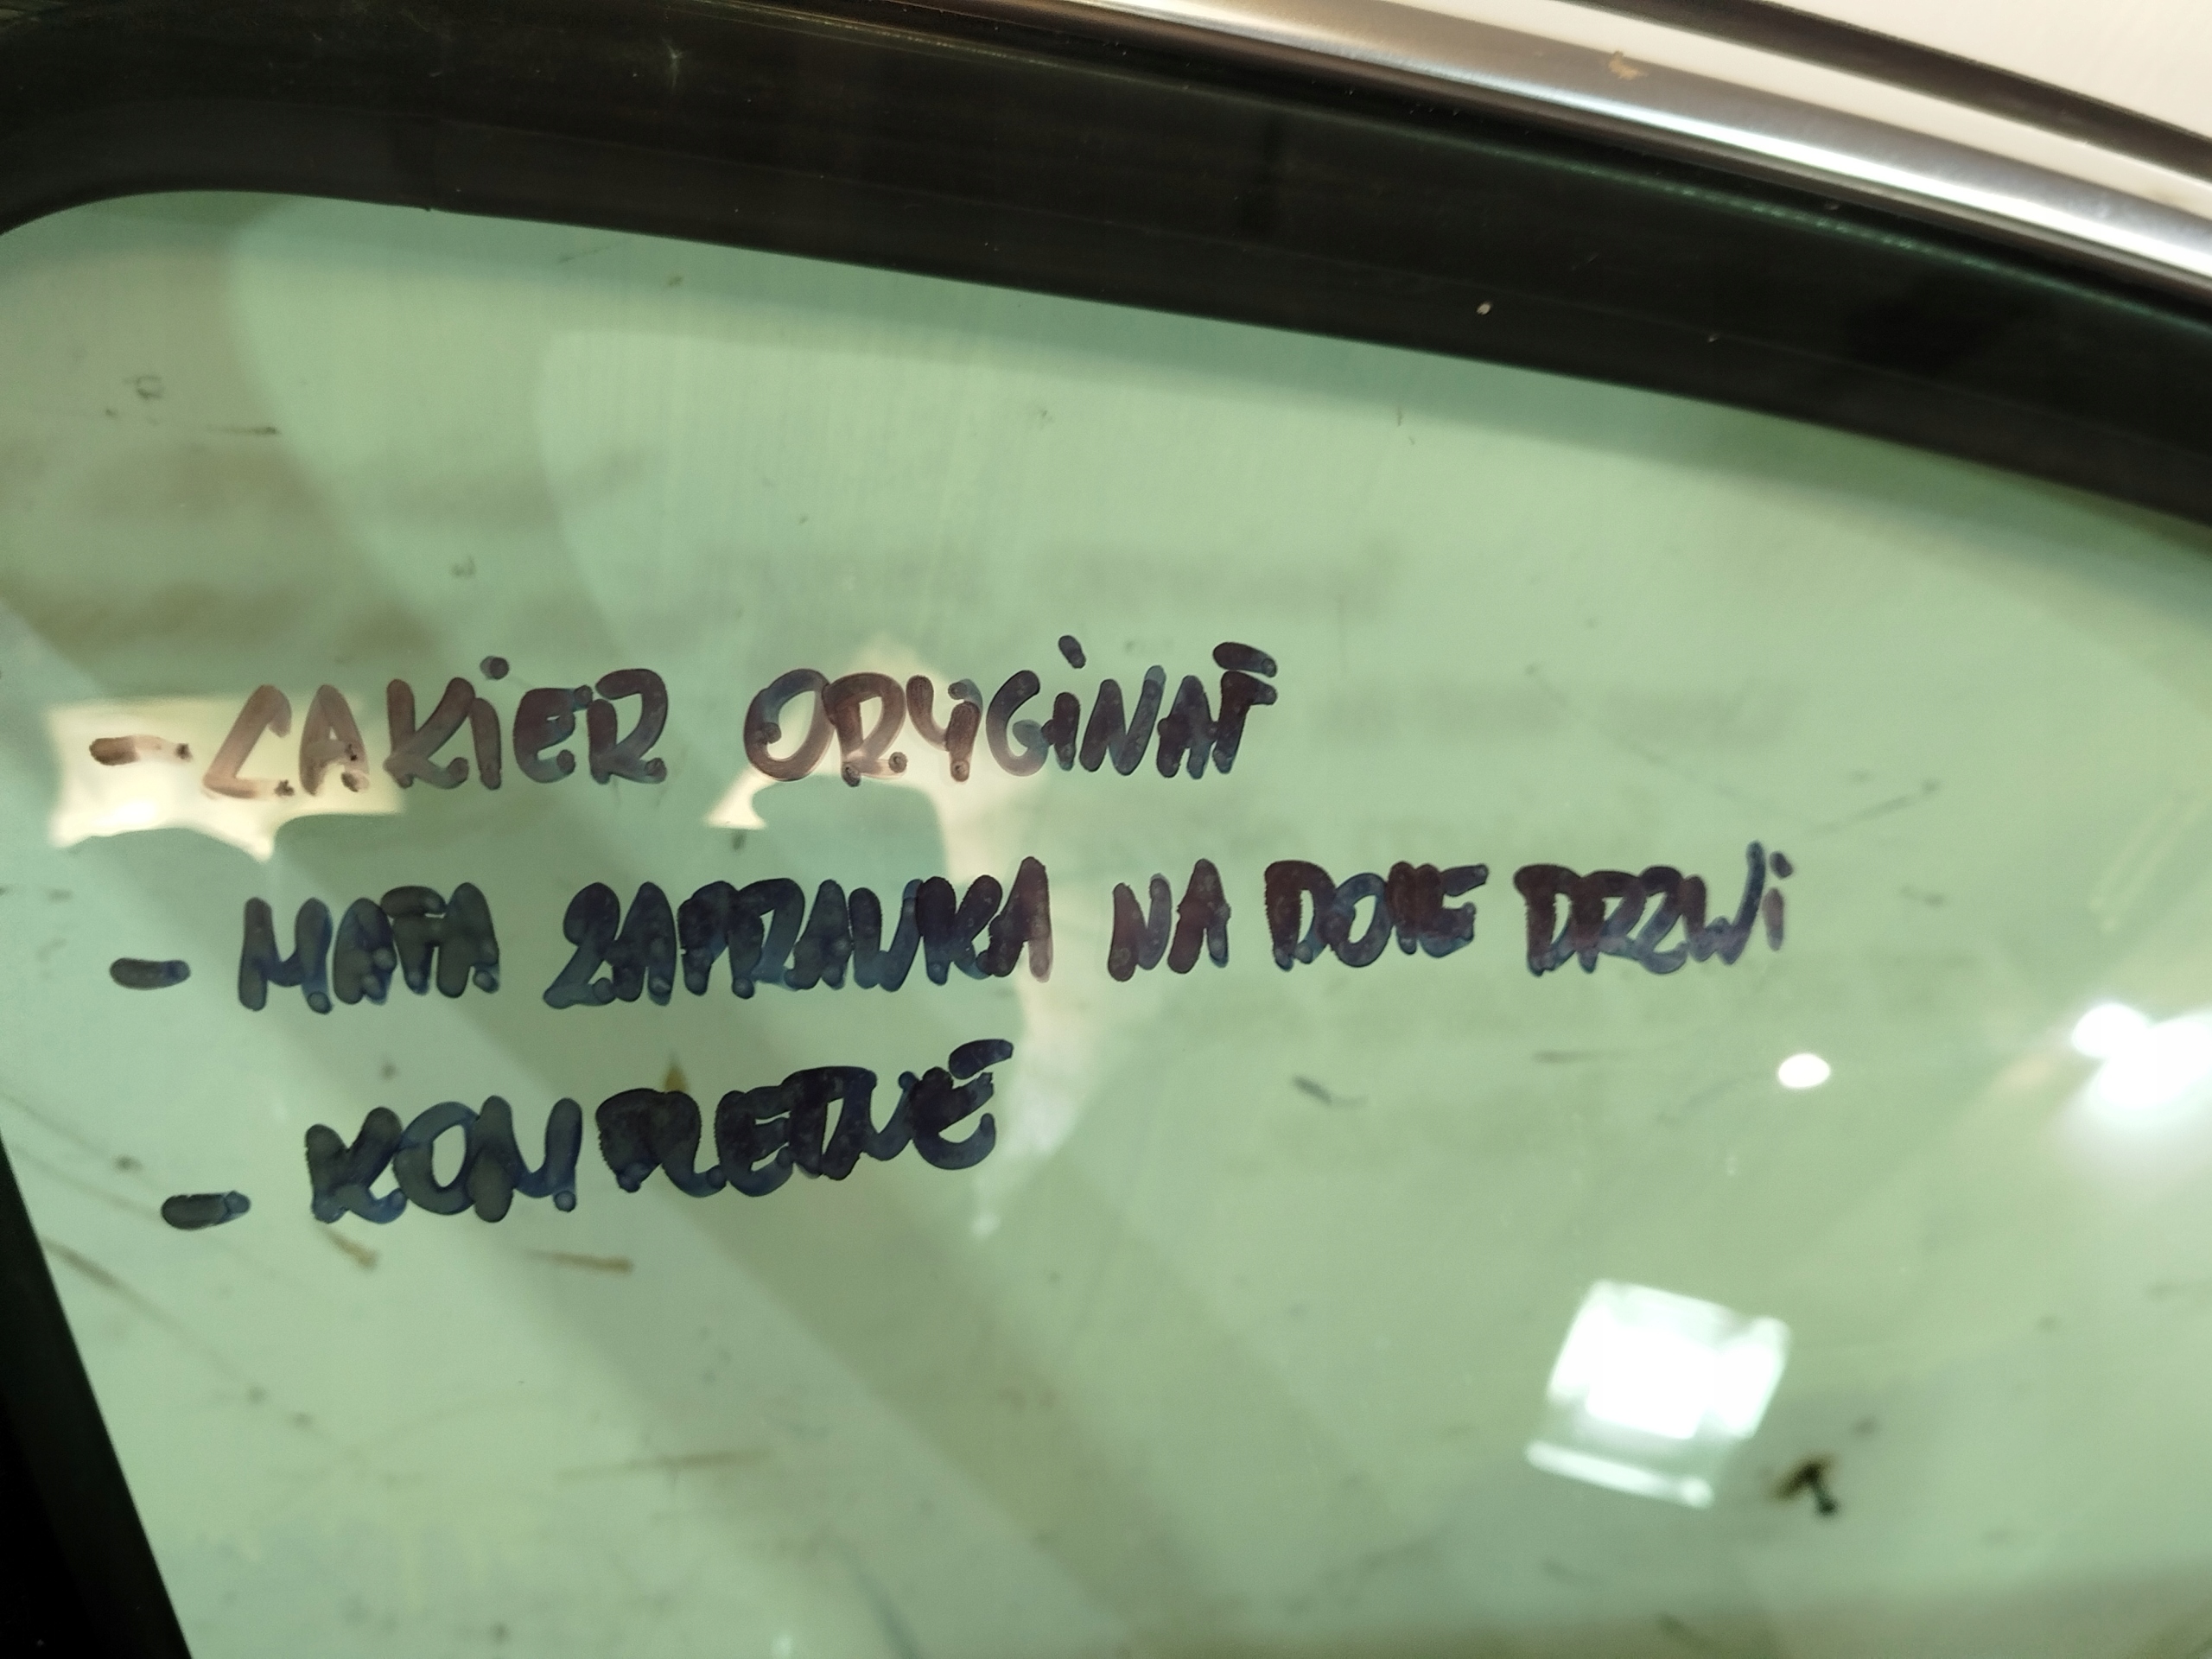 - LAKiER ORYGiNAŁ
- MAŁA ZAPRAWKA NA DOLE DRZWi
- KOMPLETNE